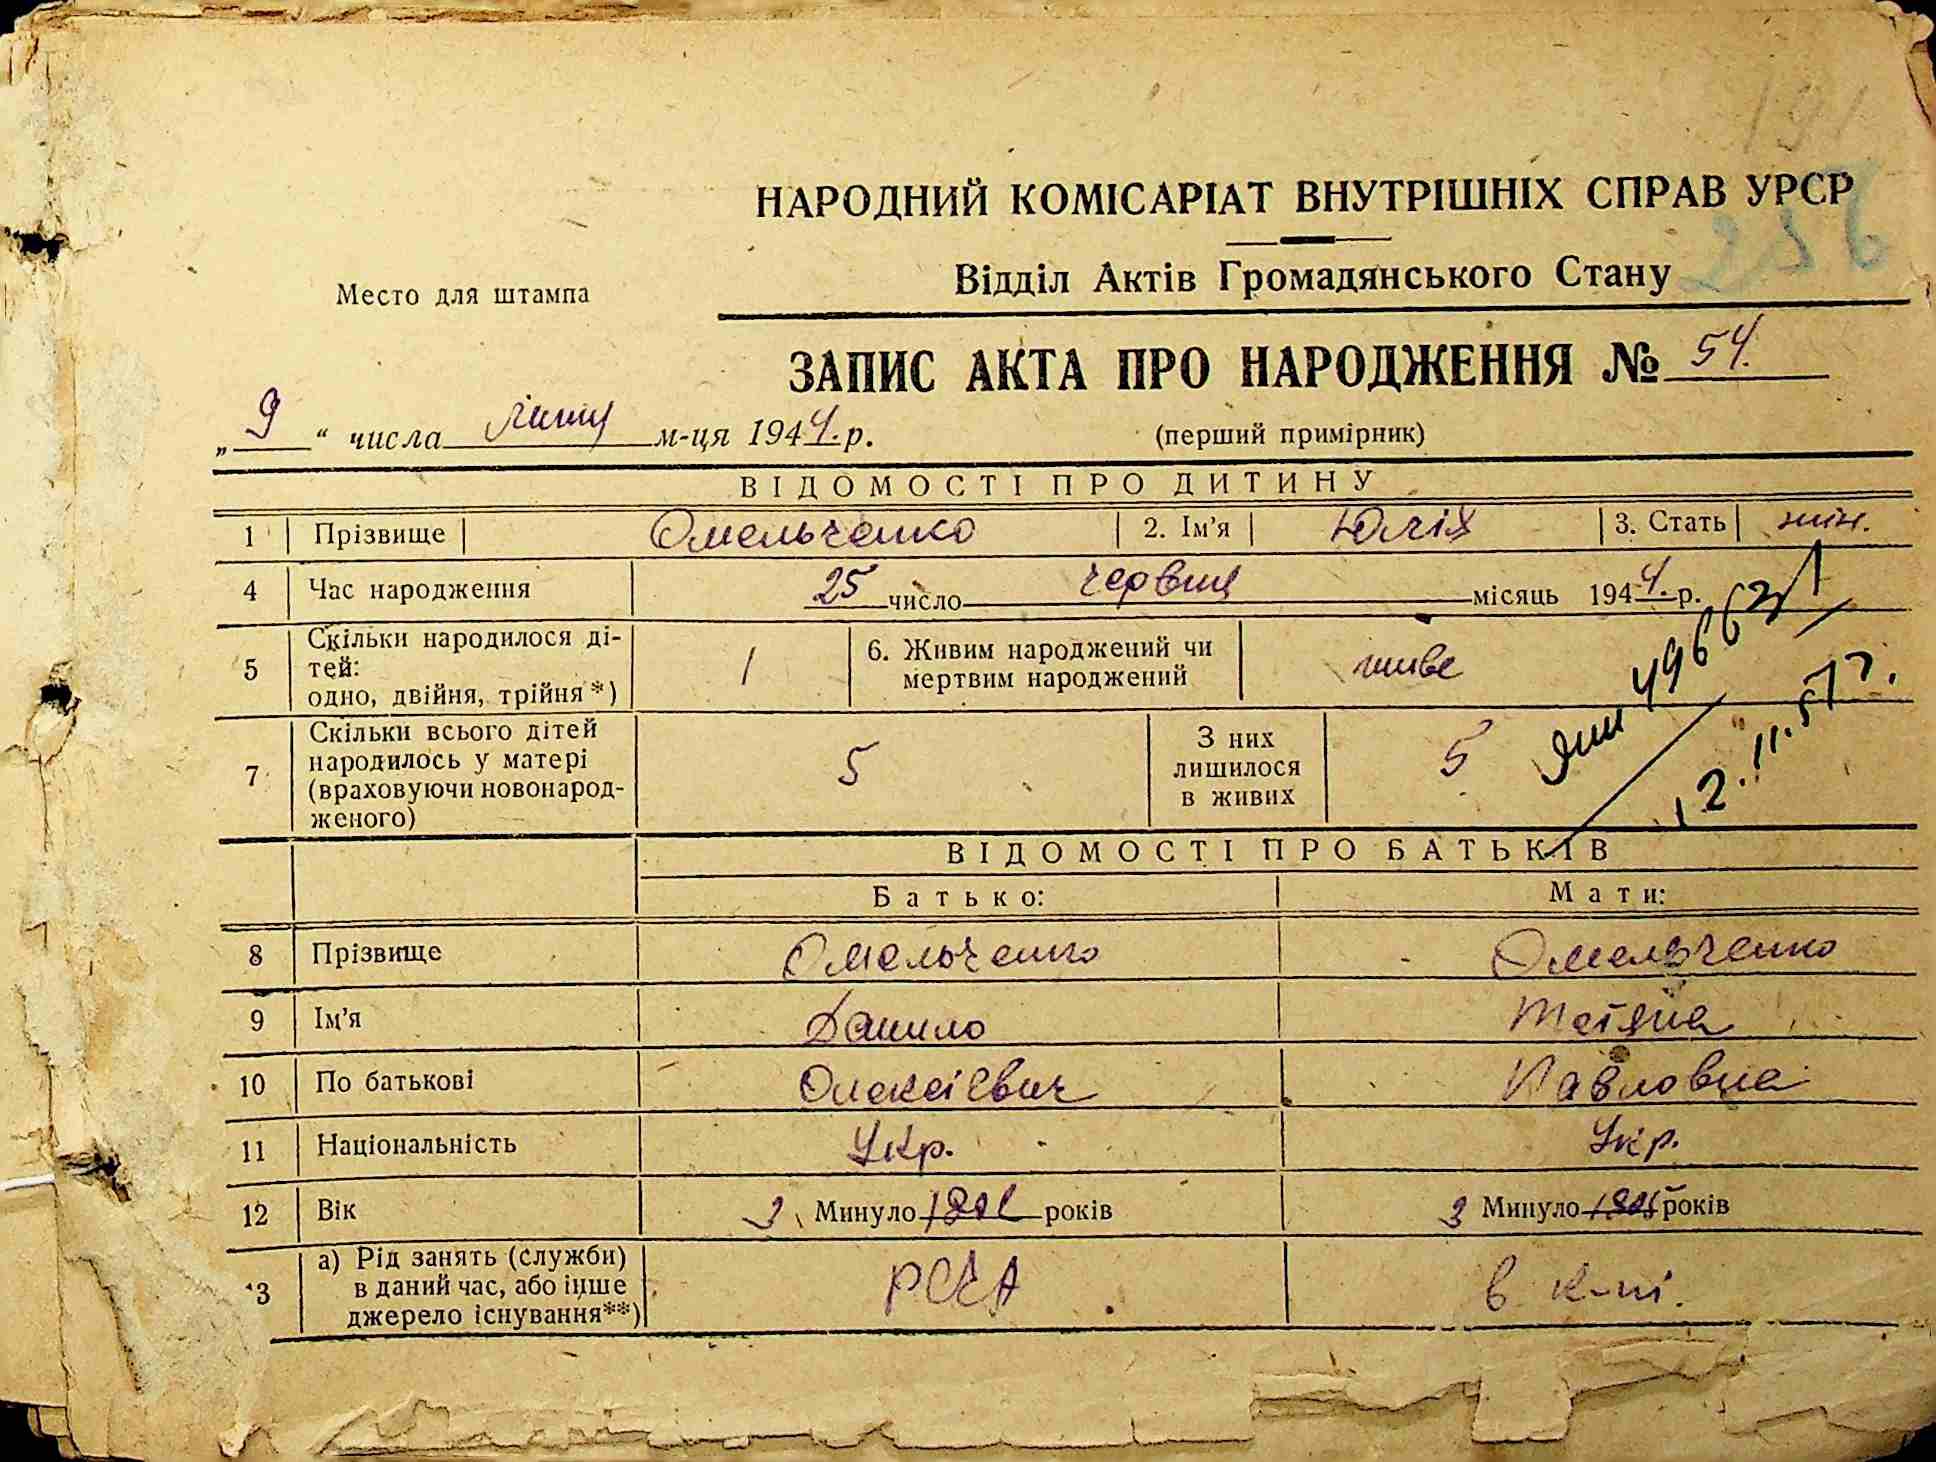 191
256
НАРОДНИЙ КОМІСАРІАТ ВНУТРІШНІХ СПРАВ УРСР
Відділ Актів Громадянського Стану
Место для штампа
ЗАПИС АКТА ПРО НАРОДЖЕННЯ № 54.
„9“ числа липця м-ця 1944. р.
(перший примірник)
ВІДОМОСТІ ПРО ДИТИНУ
1 Прізвище Омельченко 2. Ім'я Юлія 3. Стать жін.
4 Час народження 25 число червця місяць 1944. р.
5 Скільки народилося ді-
тей:
одно, двійня, трійня*) 1
6. Живим народжений чи
мертвим народжений живе
7 Скільки всього дітей
народилось у матері
(враховуючи новонарод-
женого) 5
З них
лишилося
в живих 5
12.11.57 г.
ВІДОМОСТІ ПРО БАТЬКІВ
Батько: Мати:
8 Прізвище Омельченко Омельченко
9 Ім'я Данило Тетяна
10 По батькові Олексієвич Павловна
11 Національність Укр. Укр.
12 Вік З Минуло років З Минуло років
13 а) Рід занять (служби)
в даний час, або інше
джерело існування**) РСЧА в к-пі.